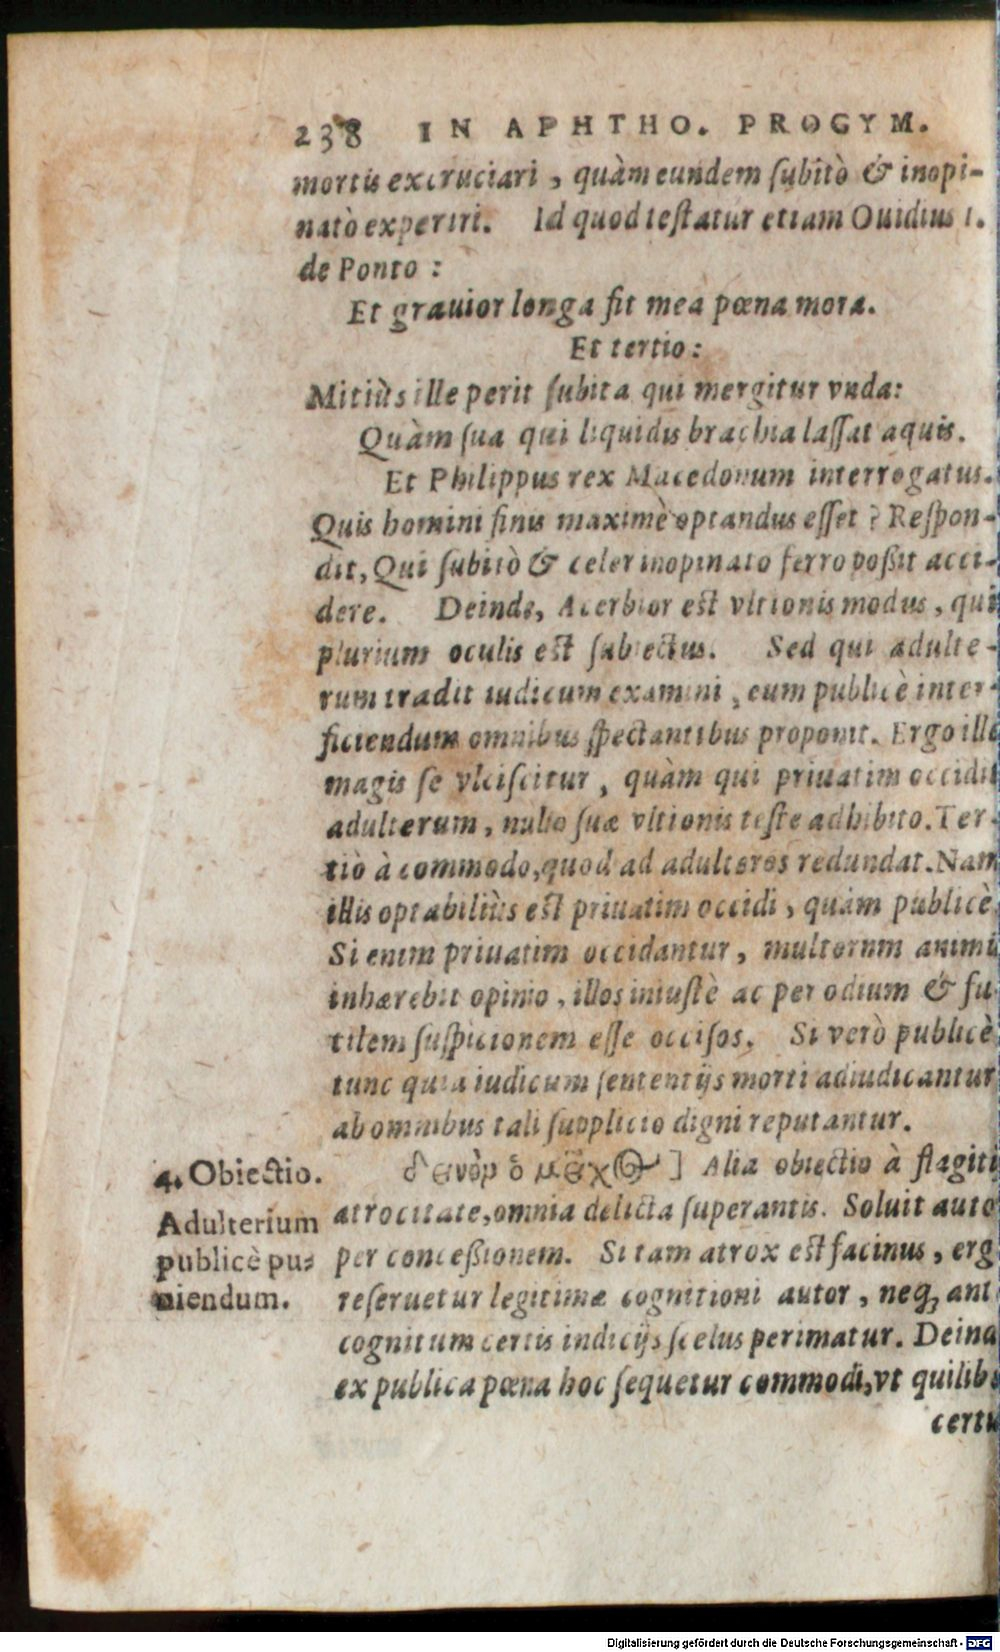 238 IN APHTHO. PROGYM.
mortis excruciari, quàm eundem ſubitò & inopi-
natò experiri. Id quod teſtatur etiam Ouidius 1.
de Ponto :
Et grauior longa fit mea pœna mora.
Et tertio:
Mitiùs ille perit ſubita qui mergitur vnda:
Quàm ſua qui liquidis brachia laſſat aquis.
Et Philippus rex Macedonum interrogatus.
Quis homini finis maximè optandus eſſet ? Reſpon-
dit, Qui ſubitò & celer inopinato ferro poßit acci-
dere. Deinde, Acerbior est vltionis modus, qui
plurium oculis est ſubiectus. Sed qui adulte-
rum tradit iudicum examini, eum publicè inter-
ficiendum omnibus ſpectantibus proponit. Ergo ille
magis ſe vlciſcitur, quàm qui priuatim occidit
adulterum, nullo ſuæ vltionis teſte adhibito. Ter-
tiò à commodo, quod ad adulteros redundat. Nam
illis optabiliùs est priuatim occidi, quàm publicè
Si enim priuatim occidantur, multorum animis
inhærebit opinio, illos iniuſtè ac per odium & fu-
tilem ſuſpicionem eſſe occiſos. Si verò publicè
tunc quia iudicum ſententijs morti adiudicantur
ab omnibus tali ſupplicio digni reputantur.
4. Obiectio. ] Alia obiectio à flagitij
Adulterium atrocitate, omnia delicta ſuperantis. Soluit auto
publicè pu- per conceßionem. Si tam atrox est facinus, erg
niendum. reſeruetur legitimæ cognitioni autor, neq; ant
cognitum certis indicijs ſcelus perimatur. Deind
ex publica pœna hoc ſequetur commodi, vt quilib
certu
Digitalisierung gefördert durch die Deutsche Forschungsgemeinschaft - DFG